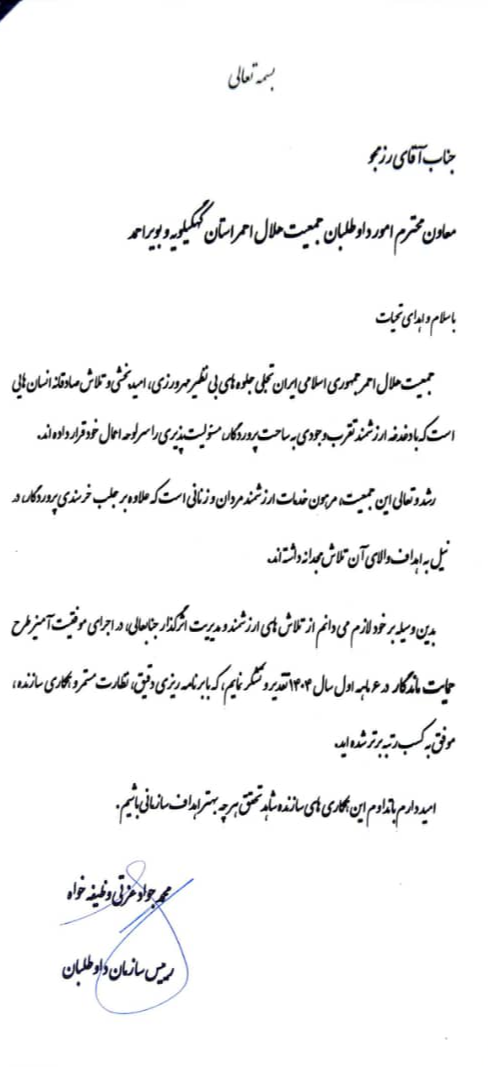 بسمه تعالی
جناب آقای رزمجو
معاون محترم امور داوطلبان جمعیت هلال احمر استان کهگیلویه و بویراحمد
باسلام و اهدای تحیات
جمعیت هلال احمر جمهوری اسلامی ایران تجلی جلوه های بی نظیر مهرورزی، امید بخشی و تلاش صادقانه انسان هایی
است که با دغدغه ارزشمند تقرب وجودی به ساحت پروردگار، مسئولیت پذیری را سرلوحه اعمال خود قرار داده اند.
رشد و تعالی این جمعیت، مرهون خدمات ارزشمند مردان و زنانی است که علاوه بر جلب خرسندی پروردگار، در
نیل به اهداف والای آن تلاش مجدانه داشته اند.
بدین وسیله بر خود لازم می دانم از تلاش های ارزشمند و مدیریت اثرگذار جنابعالی، در اجرای موفقیت آمیز طرح
حمایت ماندگار در ۶ ماهه اول سال ۱۴۰۴ تقدیر و تشکر نمایم، که با برنامه ریزی دقیق، نظارت مستمر و همکاری سازنده،
موفق به کسب رتبه برتر شده اید.
امید دارم با تداوم این همکاری های سازنده شاهد تحقق هر چه بهتر اهداف سازمانی باشیم.
محمد جواد عزتی وظیفه خواه
رییس سازمان داوطلبان